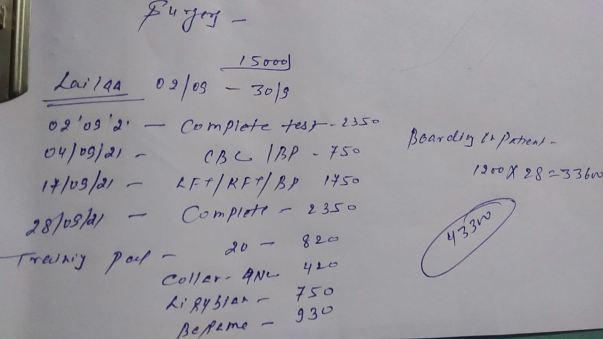 Surgery -
15000
Lailaa 02/09 - 30/9
02'09'21 - Complete test - 2350
04/09/21 - CBC / BP - 750
17/09/21 - LFT/KFT/BP 1750
28/09/21 - Complete - 2350
20 - 820
Collar - 420
750
930
Boarding
1200 X 28 = 33600
43300